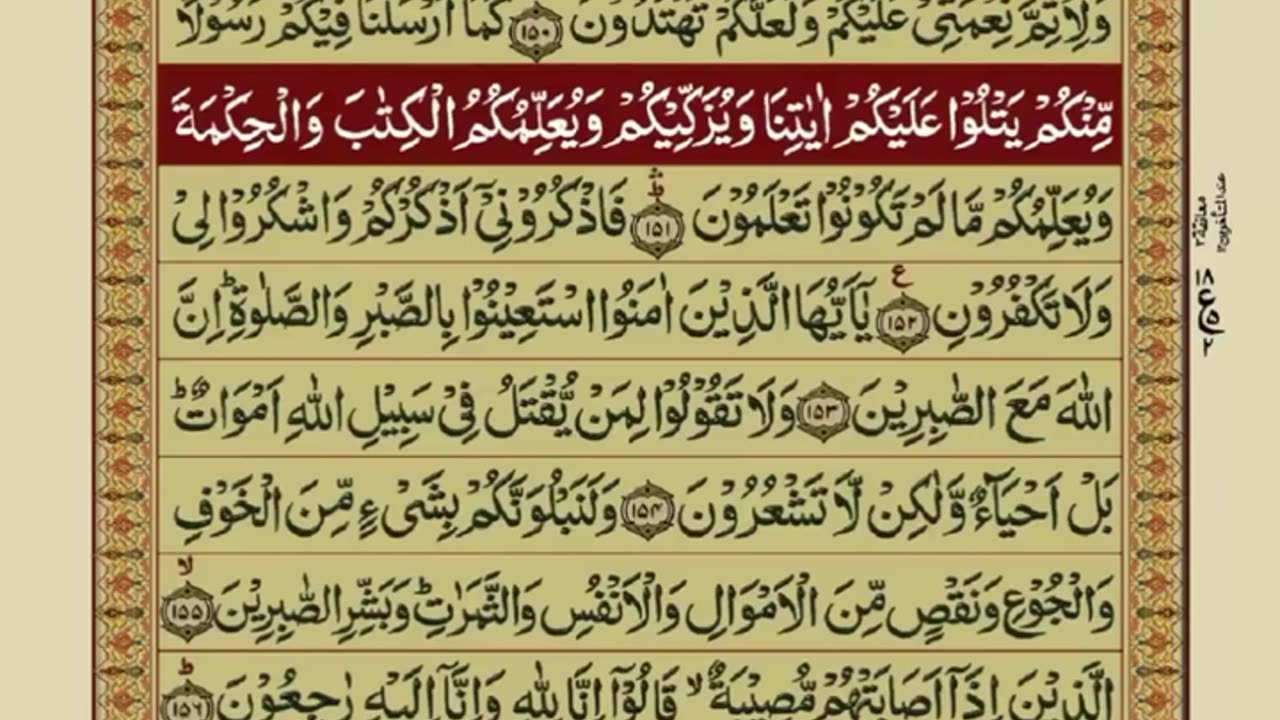 وَلِاُتِمَّ نِعْمَتِیْ عَلَیْكُمْ وَلَعَلَّكُمْ تَهْتَدُوْنَ ﴿۱۵۰﴾ كَمَاۤ اَرْسَلْنَا فِیْكُمْ رَسُوْلًا
مِّنْكُمْ یَتْلُوْا عَلَیْكُمْ اٰیٰتِنَا وَیُزَكِّیْكُمْ وَیُعَلِّمُكُمُ الْكِتٰبَ وَالْحِكْمَةَ
وَیُعَلِّمُكُمْ مَّا لَمْ تَكُوْنُوْا تَعْلَمُوْنَ ﴿۱۵۱﴾ فَاذْكُرُوْنِیْۤ اَذْكُرْكُمْ وَاشْكُرُوْا لِیْ
وَلَا تَكْفُرُوْنِ ﴿۱۵۲﴾ یٰۤاَیُّهَا الَّذِیْنَ اٰمَنُوا اسْتَعِیْنُوْا بِالصَّبْرِ وَالصَّلٰوةِ ؕ اِنَّ
اللّٰهَ مَعَ الصّٰبِرِیْنَ ﴿۱۵۳﴾ وَلَا تَقُوْلُوْا لِمَنْ یُّقْتَلُ فِیْ سَبِیْلِ اللّٰهِ اَمْوَاتٌ ؕ
بَلْ اَحْیَآءٌ وَّلٰكِنْ لَّا تَشْعُرُوْنَ ﴿۱۵۴﴾ وَلَنَبْلُوَنَّكُمْ بِشَیْءٍ مِّنَ الْخَوْفِ
وَالْجُوْعِ وَنَقْصٍ مِّنَ الْاَمْوَالِ وَالْاَنْفُسِ وَالثَّمَرٰتِ ؕ وَبَشِّرِ الصّٰبِرِیْنَ ﴿۱۵۵﴾ۙ
الَّذِیْنَ اِذَاۤ اَصَابَتْهُمْ مُّصِیْبَةٌ ۙ قَالُوْۤا اِنَّا لِلّٰهِ وَاِنَّاۤ اِلَیْهِ رٰجِعُوْنَ ﴿۱۵۶﴾ؕ
معانقة ۲
عند المتأخرین ۲
۱۸
ع
۵
۲